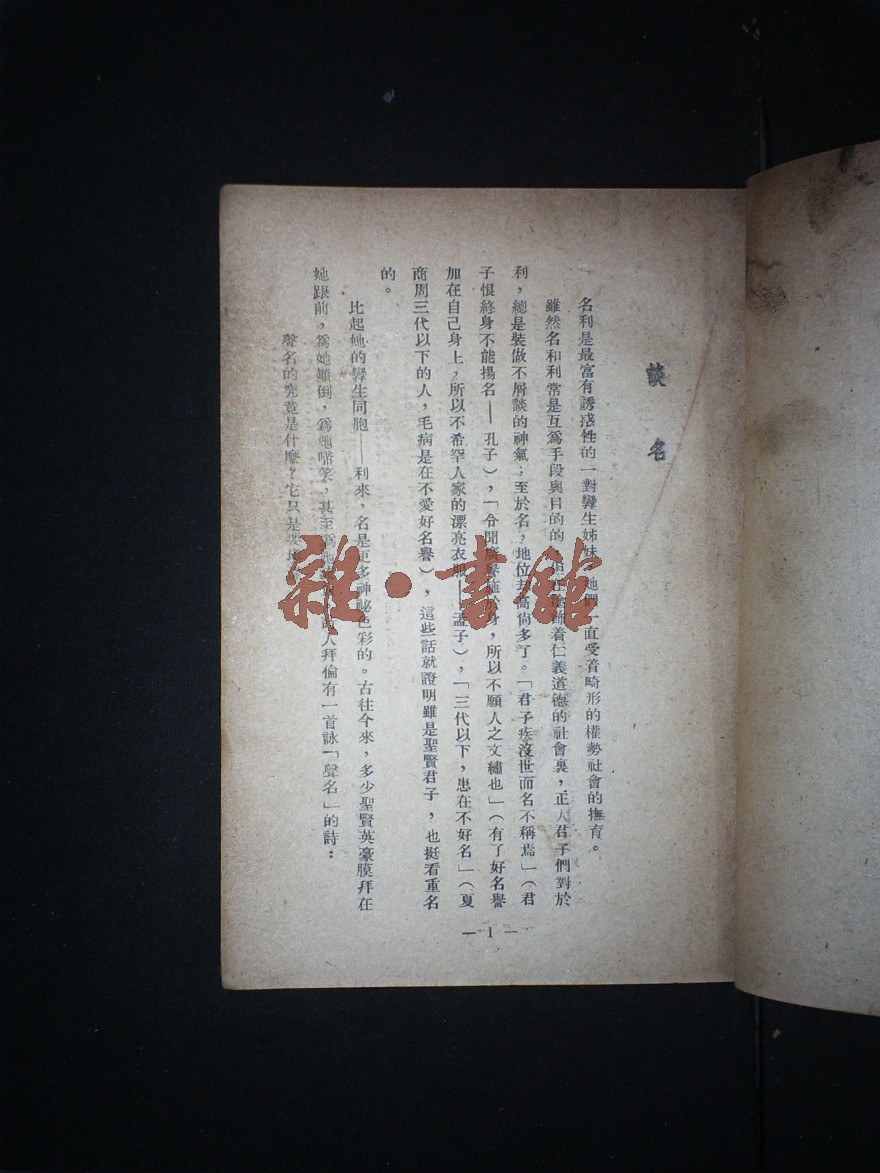 談名
名利是最富有誘惑性的一對孿生姊妹，她們一直受着畸形的權勢社會的撫育。
雖然名和利常是互爲手段與目的的，但在塗飾着仁義道德的社會裏，正人君子們對於
利，總是裝做不屑談的神氣；至於名，地位却高尙多了。「君子疾沒世而名不稱焉」（君
子恨終身不能揚名——孔子），「令聞廣譽施於身，所以不願人之文繡也」（有了好名譽
加在自己身上，所以不希罕人家的漂亮衣服——孟子），「三代以下，患在不好名」（夏
商周三代以下的人，毛病是在不愛好名譽），這些話就證明雖是聖賢君子，也挺看重名
的。
比起她的孿生同胞——利來，名是更多神祕色彩的。古往今來，多少聖賢英豪膜拜在
她跟前，爲她顚倒，爲她啼笑，甚至爲她人拜倫有一首詠「聲名」的詩：
聲名的究竟是什麼？它只是
— 1 —
雜·書館